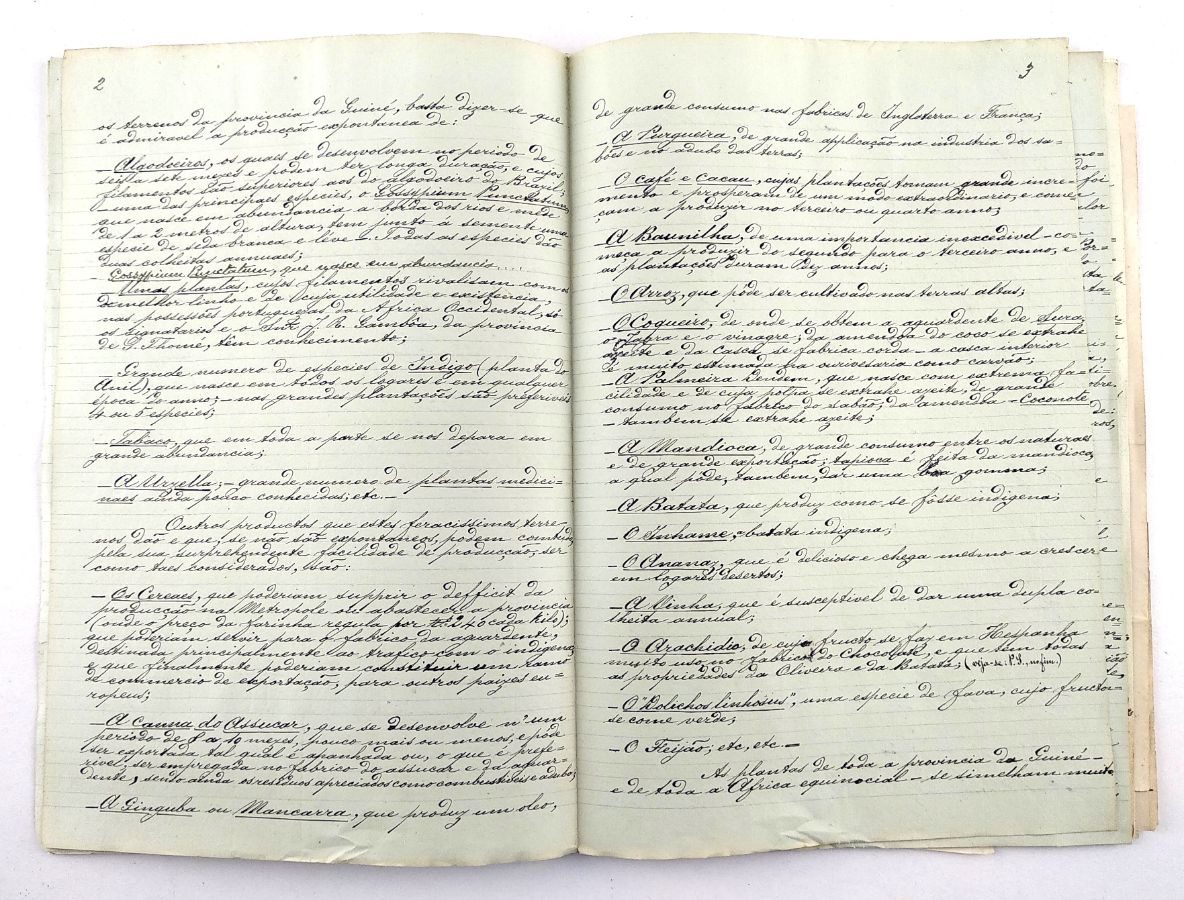 2
os terrenos da provincia da Guiné, basta dizer-se que
é admiravel a producção expontanea de:
– Algodoeiros, os quais se desenvolvem no periodo de
seis a sete mezes e podem ter longa duração, e cujos
filamentos são superiores aos do algodoeiro do Brazil;
uma das principaes especies, o Gossypium Punctatum,
que nasce em abundancia á borda dos rios e mede
de 1 a 2 metros de altura, tem junto á semente uma
especie de seda branca e leve – Todas as especies dão
duas colheitas annuaes;
Gossypium Punctatum, que nasce em abundancia....
– Umas plantas, cujos filamentos rivalisam com os
do melhor linho e de cuja utilidade e existencia,
nas possessões portuguezas da Africa Occidental, só
os signatarios e o Snr. J. R. Gambôa, da provincia
de S. Thomé, têm conhecimento;
– Grande numero de especies de Indigo (planta do
Anil), que nasce em todos os logares e em qualquer
época do anno; – nas grandes plantações são preferiveis
4 ou 5 especies;
– Tabaco, que em toda a parte se nos depara em
grande abundancia;
– A Urzella; – grande numero de plantas medici-
naes ainda pouco conhecidas, etc. –
Outros productos que estes feracissimos terre-
nos dão e que, se não são expontaneos, podem comtudo,
pela sua surprehendente facilidade de producção, ser
como taes considerados, são:
– Os Cereaes, que poderiam supprir o defficit da
producção na Metropole ou abastecer a provincia
(onde o preço da farinha regula por 240 cada kilo);
que poderiam servir para o fabrico da aguardente,
destinada principalmente ao trafico com o indigena;
e que finalmente poderiam constituir um ramo
de commercio de exportação, para outros paizes eu-
ropeus;
– A canna do Assucar, que se desenvolve n'um
periodo de 8 a 10 mezes, pouco mais ou menos, e póde
ser exportada tal qual é apanhada ou, o que é prefe-
rivel, ser empregada no fabrico do assucar e da aguar-
dente, sendo ainda os residuos apreciados como combustivel e adubo;
– A Ginguba ou Mancarra, que produz um oleo,
3
de grande consumo nas fabricas de Inglaterra e França;
– A Purgueira, de grande applicação na industria dos sa-
bões e no adubo das terras;
– O café e Cacau, cujas plantações tomam grande incre-
mento e prosperam de um modo extraordinario, e come-
çam a produzir no terceiro ou quarto anno;
– A Baunilha, de uma importancia inexcedivel – co-
meça a produzir do segundo para o terceiro anno, e
as plantações duram dez annos;
– O Arroz, que póde ser cultivado nas terras altas;
– O Coqueiro, de onde se obtem a aguardente de Sura,
o Copra e o vinagre; da amendoa do coco se extrahe
azeite e da Casca se fabrica corda – a casca interior
é muito estimada na ourivesaria como carvão;
– A Palmeira Dendem, que nasce com extrema fa-
cilidade e de cuja polpa se extrahe azeite, de grande
consumo no fabrico do sabão; da amendoa – Coconote
– tambem se extrahe azeite;
– A Mandioca, de grande consumo entre os naturaes
e de grande exportação; tapioca é feita da mandioca,
a qual póde, tambem, dar uma boa gomma;
– A Batata, que produz como se fôsse indigena;
– O Inhame, batata indigena;
– O Ananaz, que é delicioso e chega mesmo a crescer
em logares desertos;
– A Vinha, que é susceptivel de dar uma dupla co-
lheita annual;
– O Arachidio, de cujo fructo se faz em Hespanha
muito uso, no fabrico do Chocolate, e que tem todas
as propriedades da Oliveira e da Batata; (veja-se: P.S., no fim.)
– O "Dolichos linhosus", uma especie de fava, cujo fructo
se come verde;
– O Feijão; etc, etc –
As plantas de toda a provincia da Guiné –
e de toda a Africa equinocial – se similham muito